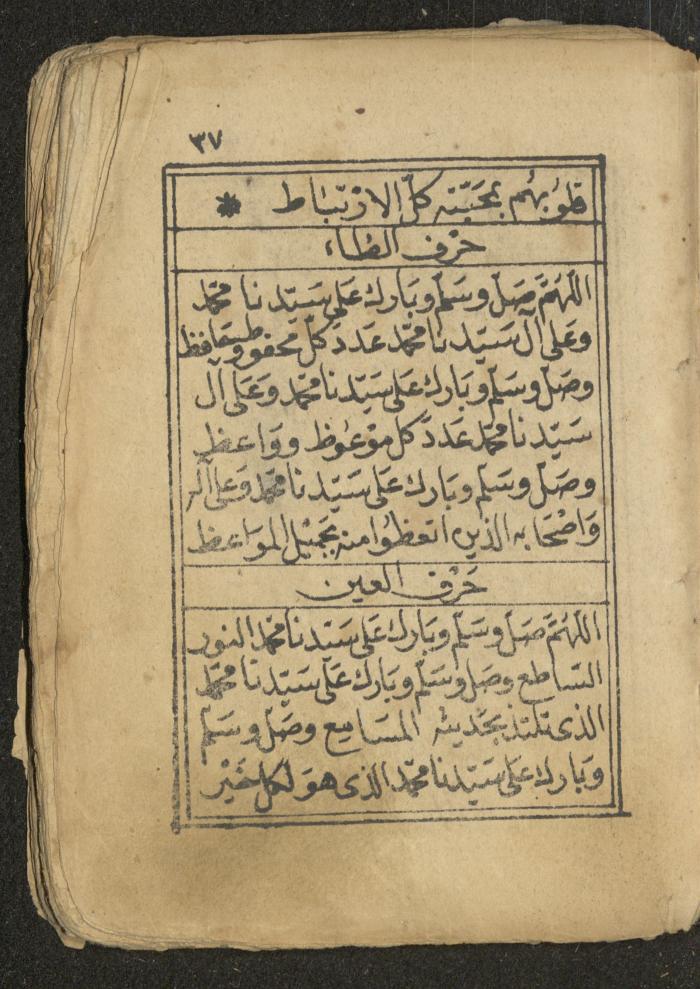 ٣٧
قلوبهم بمحبته كل الارتباط *
حرف الظاء
اللهم صل وسلم وبارك على سيدنا محمد
وعلى آل سيدنا محمد عدد كل محفوظ وحافظ
وصل وسلم وبارك على سيدنا محمد وعلى آل
سيدنا محمد عدد كل موعوظ وواعظ
وصل وسلم وبارك على سيدنا محمد وعلى آله
واصحابه الذين اتعظوا منه بجميل المواعظ
حرف العين
اللهم صل وسلم وبارك على سيدنا محمد النور
الساطع وصل وسلم وبارك على سيدنا محمد
الذى تلتذ بحديثه المسامع وصل وسلم
وبارك على سيدنا محمد الذى هو لكل خير